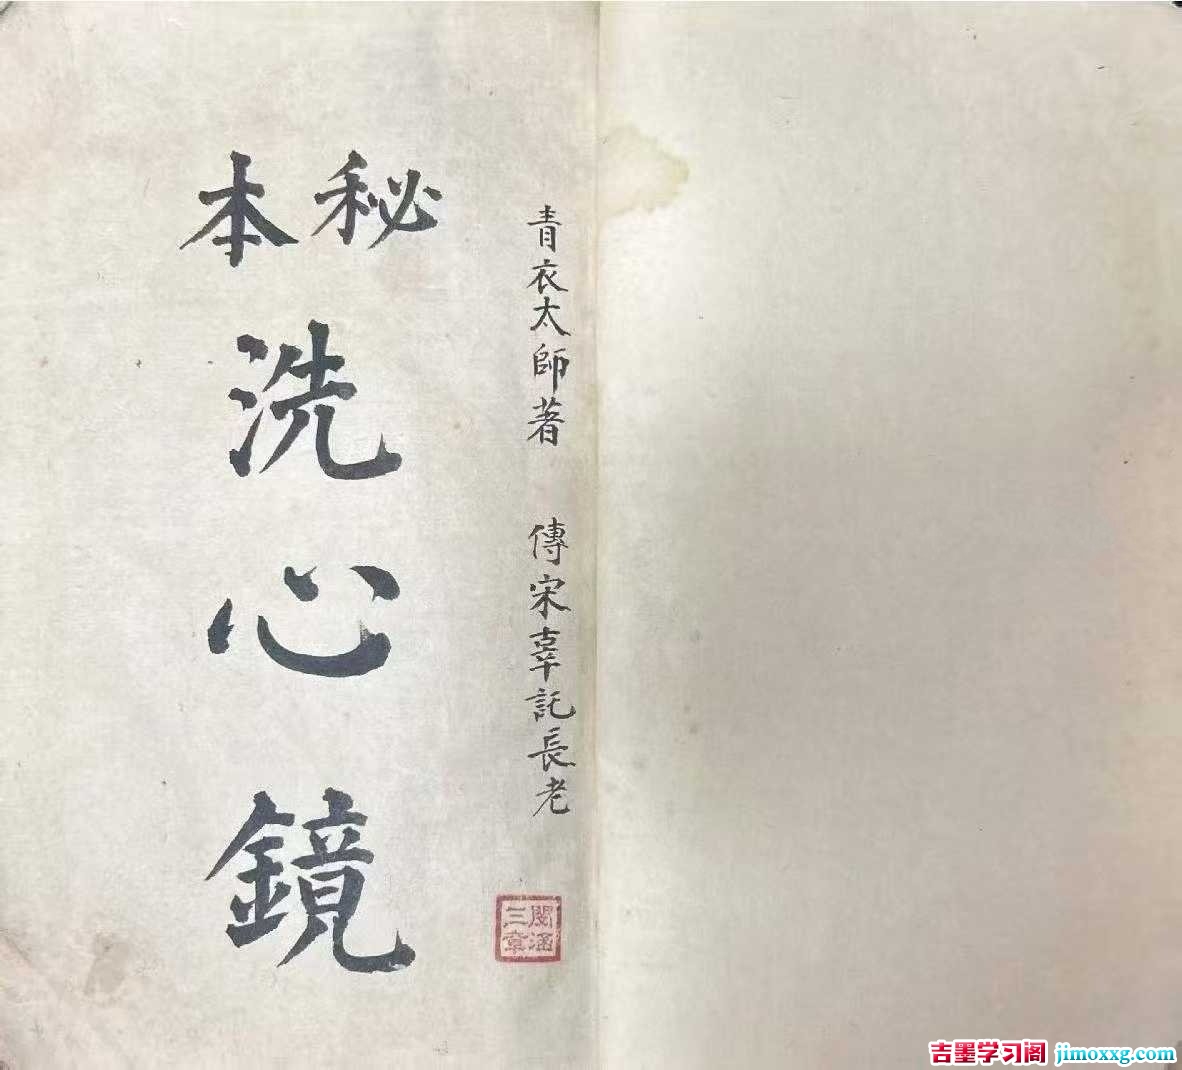 青衣太師著 傳宋辜託長老
秘本
洗心鏡
閔涵三章
吉墨学习阁 jimoxxg.com